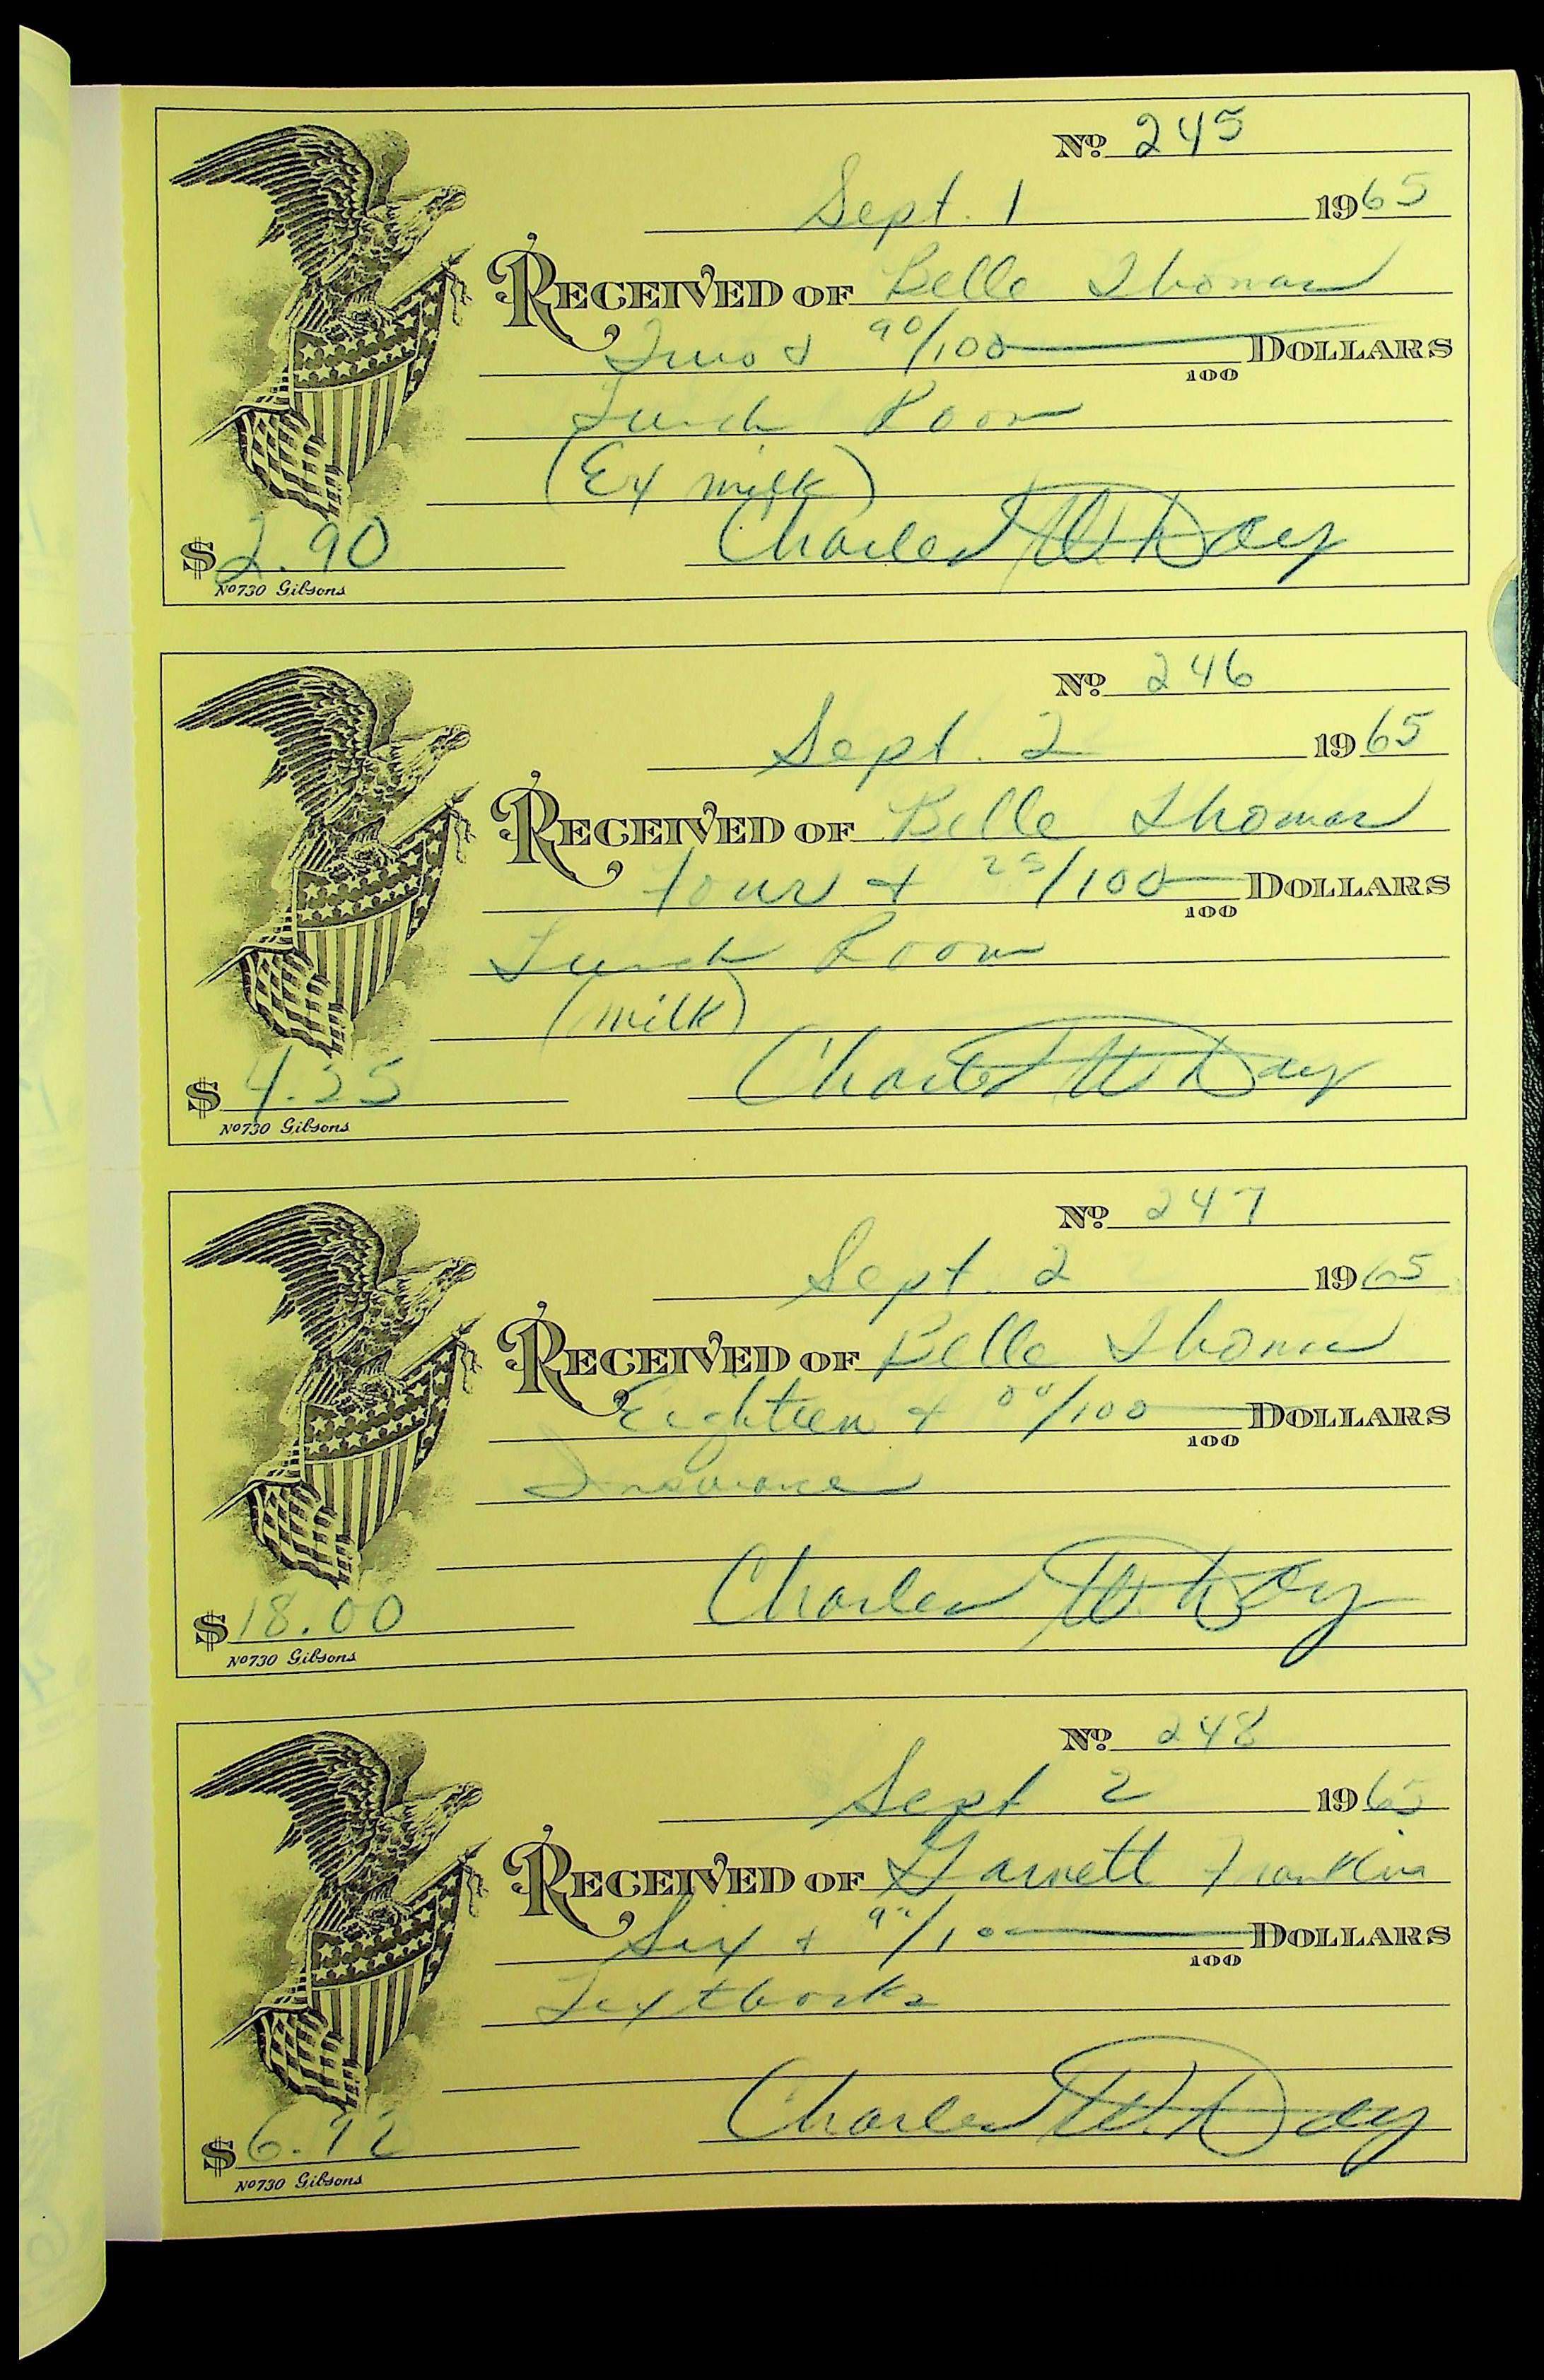 Nº 245
Sept. 1 1965
RECEIVED OF Belle Thomas
Two & 90/100 DOLLARS
100
Lunch Room
(Ex milk)
$ 2.90 Charles W. Day
Nº730 Gibsons
Nº 246
Sept. 2 1965
RECEIVED OF Belle Thomas
Four & 25/100 DOLLARS
100
Lunch Room
(milk)
$ 4.25 Charles W. Day
Nº730 Gibsons
Nº 247
Sept. 2 1965
RECEIVED OF Belle Thomas
Eighteen & 00/100 DOLLARS
100
Insurance
$ 18.00 Charles W. Day
Nº730 Gibsons
Nº 248
Sept 2 1965
RECEIVED OF Garnett Franklin
Six & DOLLARS
100
Textbooks
$ Charles W. Day
Nº730 Gibsons